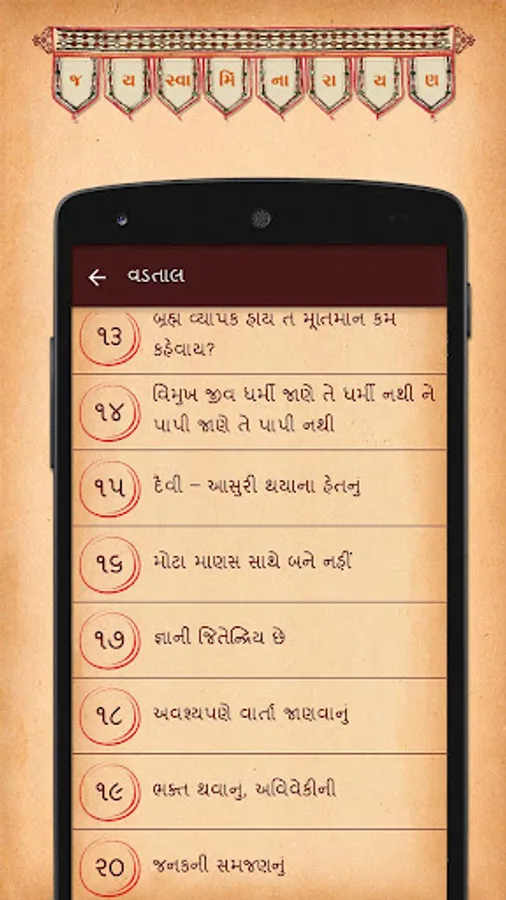 જ ય સ્વા મિ ના રા ય ણ
વડતાલ
૧૩
બ્રહ્મ વ્યાપક હોય તે મૂર્તિમાન કેમ
કહેવાય?
૧૪
વિમુખ જીવ ધર્મી જાણે તે ધર્મી નથી ને
પાપી જાણે તે પાપી નથી
૧૫ દૈવી – આસુરી થયાના હેતનું
૧૬ મોટા માણસ સાથે બને નહીં
૧૭ જ્ઞાની જિતેન્દ્રિય છે
૧૮ અવશ્યપણે વાર્તા જાણવાનું
૧૯ ભક્ત થવાનું, અવિવેકીની
૨૦ જનકની સમજણનું